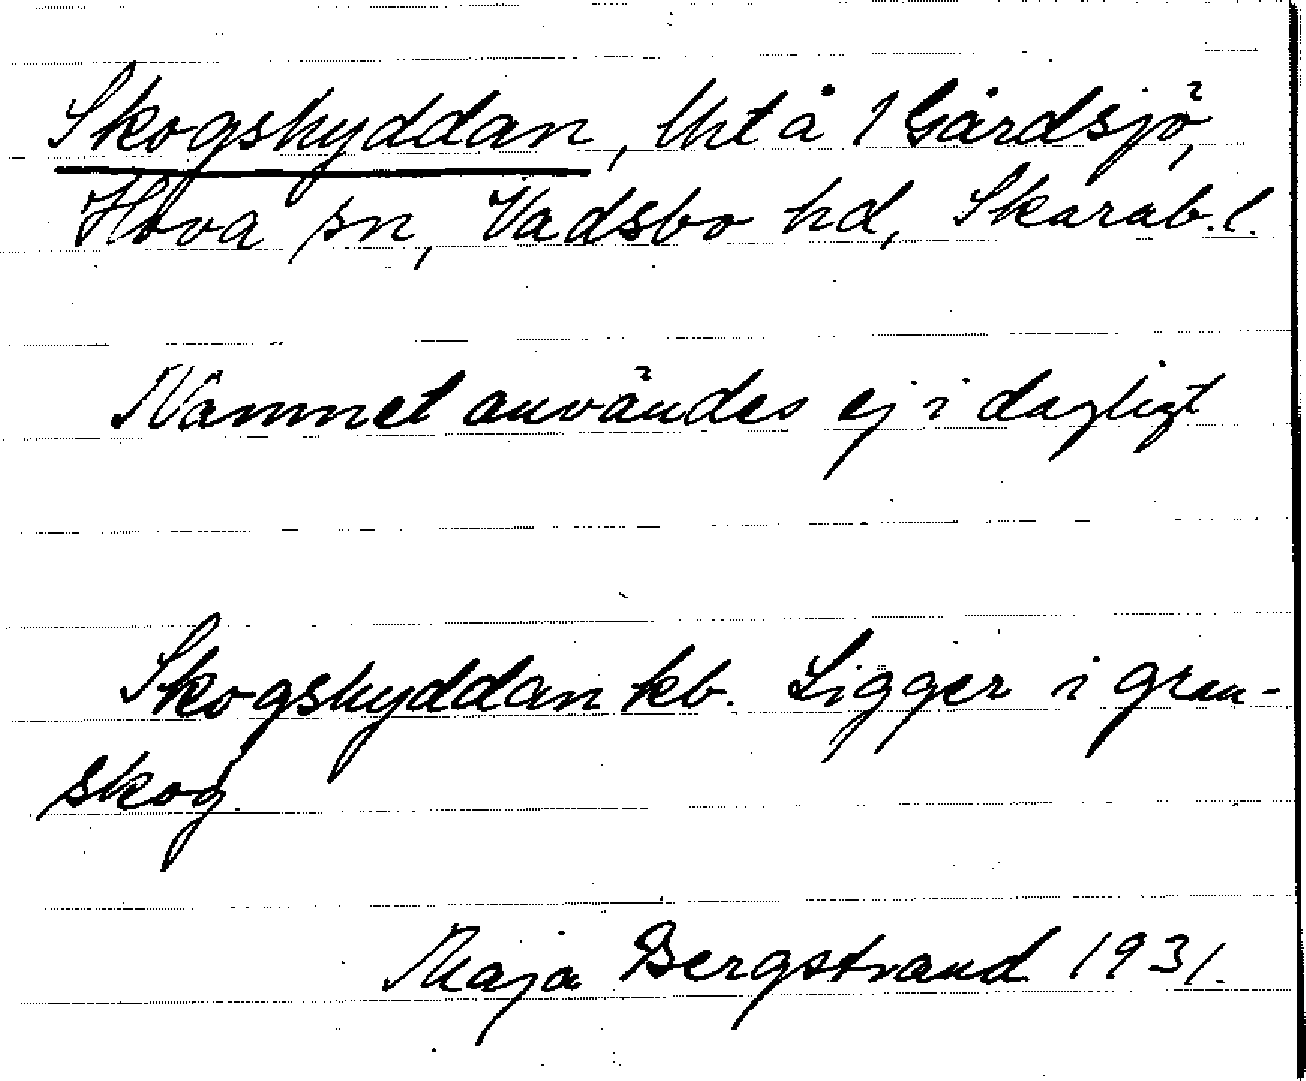 Skogshyddan, lht å 1 Gårdsjö,
Hova sn, Vadsbo hd, Skarab. l.
Namnet användes ej i dagligt
Skogshyddan kb. Ligger i gran-
skog.
Maja Bergstrand 1931.